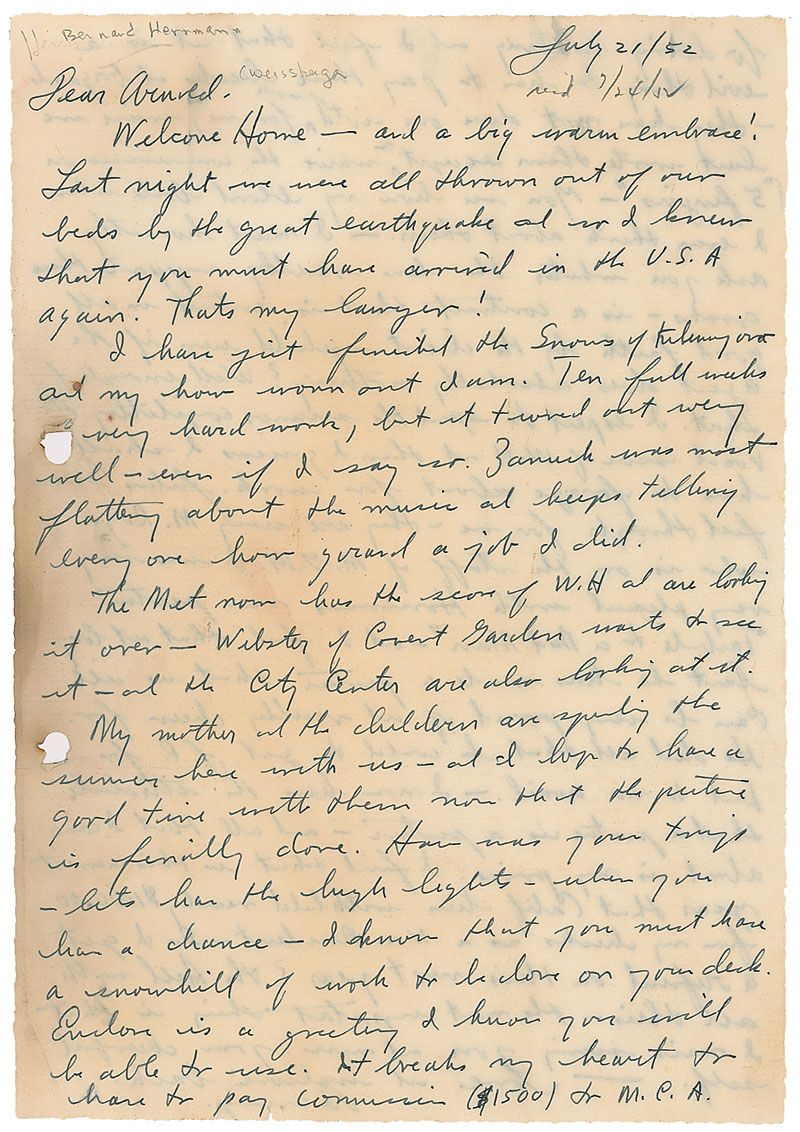 Bernard Herrmann
(Weissberger
July 21/52
recd 7/24/52
Dear Arnold.
Welcome Home — and a big warm embrace!
Last night we were all thrown out of our
beds by the great earthquake at so I knew
that you must have arrived in the U.S.A
again. Thats my lawyer!
I have just finished the Snows of Kilimanjaro
and my how worn out I am. Ten full weeks
of very hard work, but it turned out very
well — even if I say so. Zanuck was most
flattering about the music and keeps telling
every one how good a job I did.
The Met now has the score of W.H and are looking
it over — Webster of Covent Garden wants to see
it — and the City Center are also looking at it.
My mother and the children are spending the
summer here with us — and I hope to have a
good time with them now that the picture
is finally done. How was your trip
— lets have the high lights — when you
have a chance — I know that you must have
a snowhill of work to be done on your desk.
Enclose is a greeting I know you will
be able to use. It breaks my heart to
have to pay commission ($1500) to M.C.A.